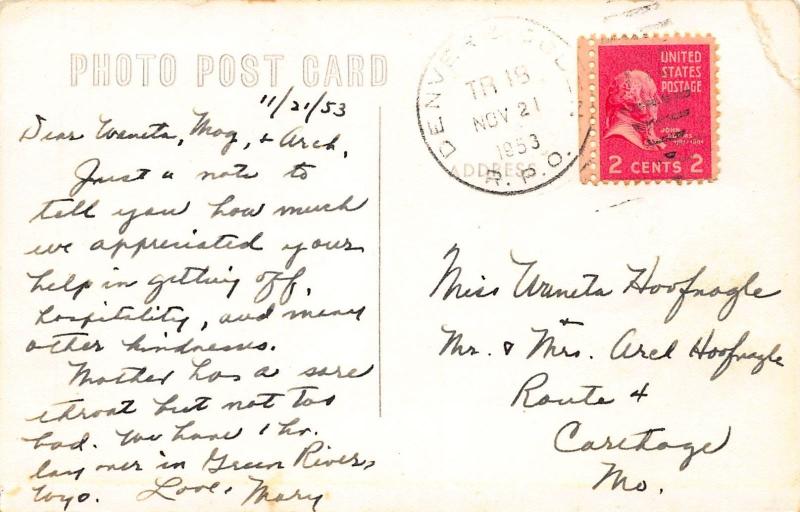 PHOTO POST CARD
11/21/53
Dear Waneta, Mag, & Arch,
Just a note to
tell you how much
we appreciated your
help in getting off,
hospitality, and many
other kindnesses.
Mother has a sore
throat but not too
bad. We have 1 hr.
lay over in Green River,
Wyo. Love, Mary
DENVER &
TR 19
NOV 21
1953
R.P.O.
ADDRESS
UNITED
STATES
POSTAGE
JOHN
ADAMS
2 CENTS 2
Miss Waneta Hoofnagle
+
Mr. & Mrs. Arel Hoofnagle
Route 4
Carthage
Mo.